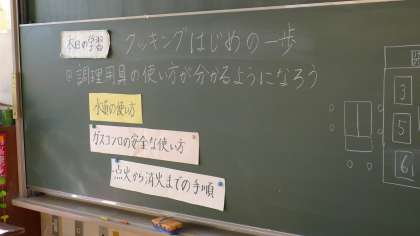 本日の学習 クッキングはじめの一歩
調理用具の使い方が分かるようになろう
水道の使い方
ガスコンロの安全な使い方
点火から消火までの手順
3
5
6